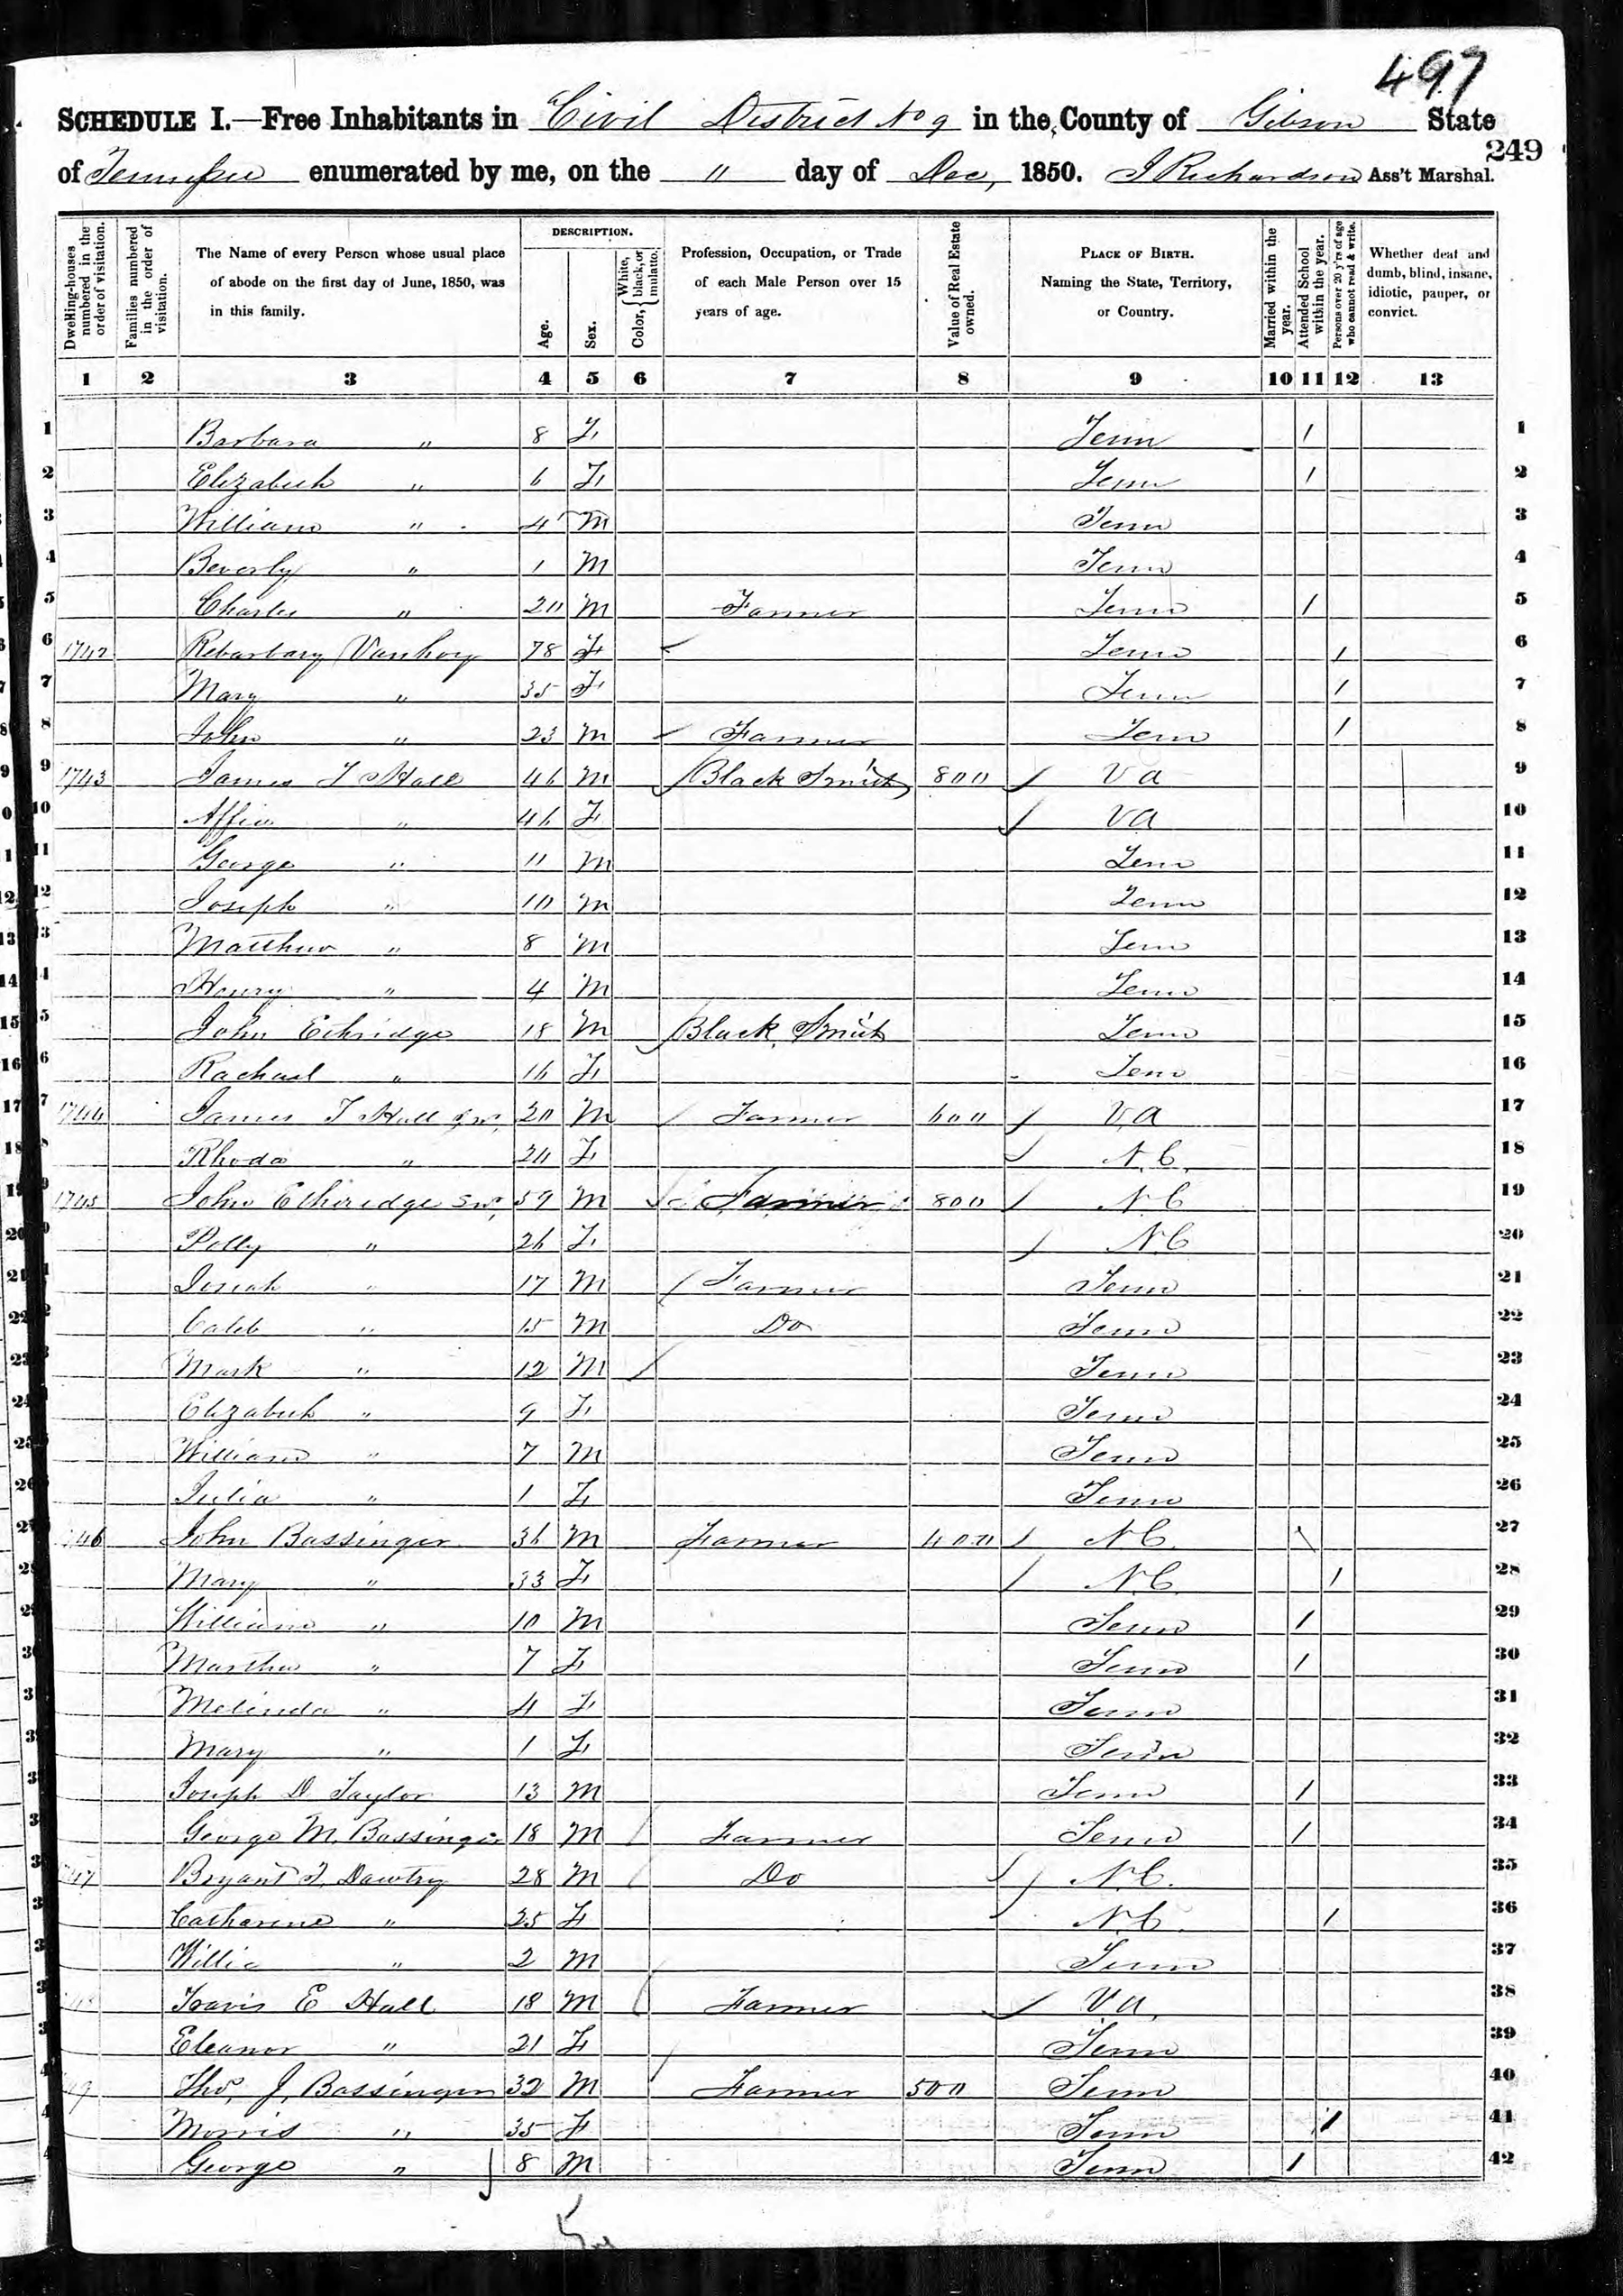 497
SCHEDULE I.—Free Inhabitants in Civil District No 9 in the County of Gibson State
249
of Tennessee enumerated by me, on the 11 day of Dec, 1850. J Richardson Ass't Marshal.
Dwelling-houses numbered in the order of visitation.
Families numbered in the order of visitation.
The Name of every Person whose usual place of abode on the first day of June, 1850, was in this family.
DESCRIPTION.
Age.
Sex.
Color, { White, black, or mulatto.
Profession, Occupation, or Trade of each Male Person over 15 years of age.
Value of Real Estate owned.
PLACE OF BIRTH. Naming the State, Territory, or Country.
Married within the year.
Attended School within the year.
Persons over 20 y'rs of age who cannot read & write.
Whether deaf and dumb, blind, insane, idiotic, pauper, or convict.
1 2 3 4 5 6 7 8 9 10 11 12 13
1 Barbara " 8 F Tenn / 1
2 Elizabeth " 6 F Tenn / 2
3 William " 4 M Tenn 3
4 Beverly " 1 M Tenn 4
5 Charles " 20 M Farmer Tenn / 5
6 1742 Vanhoy 78 F Tenn / 6
7 Mary " 35 F Tenn / 7
8 John " 23 M Farmer Tenn / 8
9 1743 James T Hall 46 M Black Smith 800 VA 9
10 " 46 F VA 10
11 George " 11 M Tenn 11
12 Joseph " 10 M Tenn 12
13 Matthew " 8 M Tenn 13
14 Henry " 4 M Tenn 14
15 John Ethridge 18 M Black Smith Tenn 15
16 Rachael " 16 F Tenn 16
17 1744 James T Hall Jnr, 20 M Farmer 600 VA 17
18 Rhoda " 24 F N.C. 18
19 1745 John Etheridge Snr, 59 M Farmer 800 N C 19
20 Polly " 26 F N.C 20
21 Josiah " 17 M Farmer Tenn 21
22 Caleb " 15 M Do Tenn 22
23 Mark " 12 M Tenn 23
24 Elizabeth " 9 F Tenn 24
25 William " 7 M Tenn 25
26 Julia " 1 F Tenn 26
27 46 John Bassinger 36 M Farmer 400 N.C. 27
28 Mary " 33 F N.C. / 28
29 William " 10 M Tenn / 29
30 Martha " 7 F Tenn / 30
31 Melinda " 4 F Tenn 31
32 Mary " 1 F Tenn 32
33 Joseph D Taylor 13 M Tenn / 33
34 George M. Bassinger 18 M Farmer Tenn / 34
35 47 Bryant Dawtry 28 M Do N.C. 35
36 Catharine " 25 F N.C. / 36
37 Willie " 2 M Tenn 37
38 Travis E Hall 18 M Farmer VA. 38
39 Eleanor " 21 F Tenn 39
40 Tho, J, Bassinger 32 M Farmer 500 Tenn 40
41 Morris " 35 F Tenn / 41
42 George " 8 M Tenn / 42